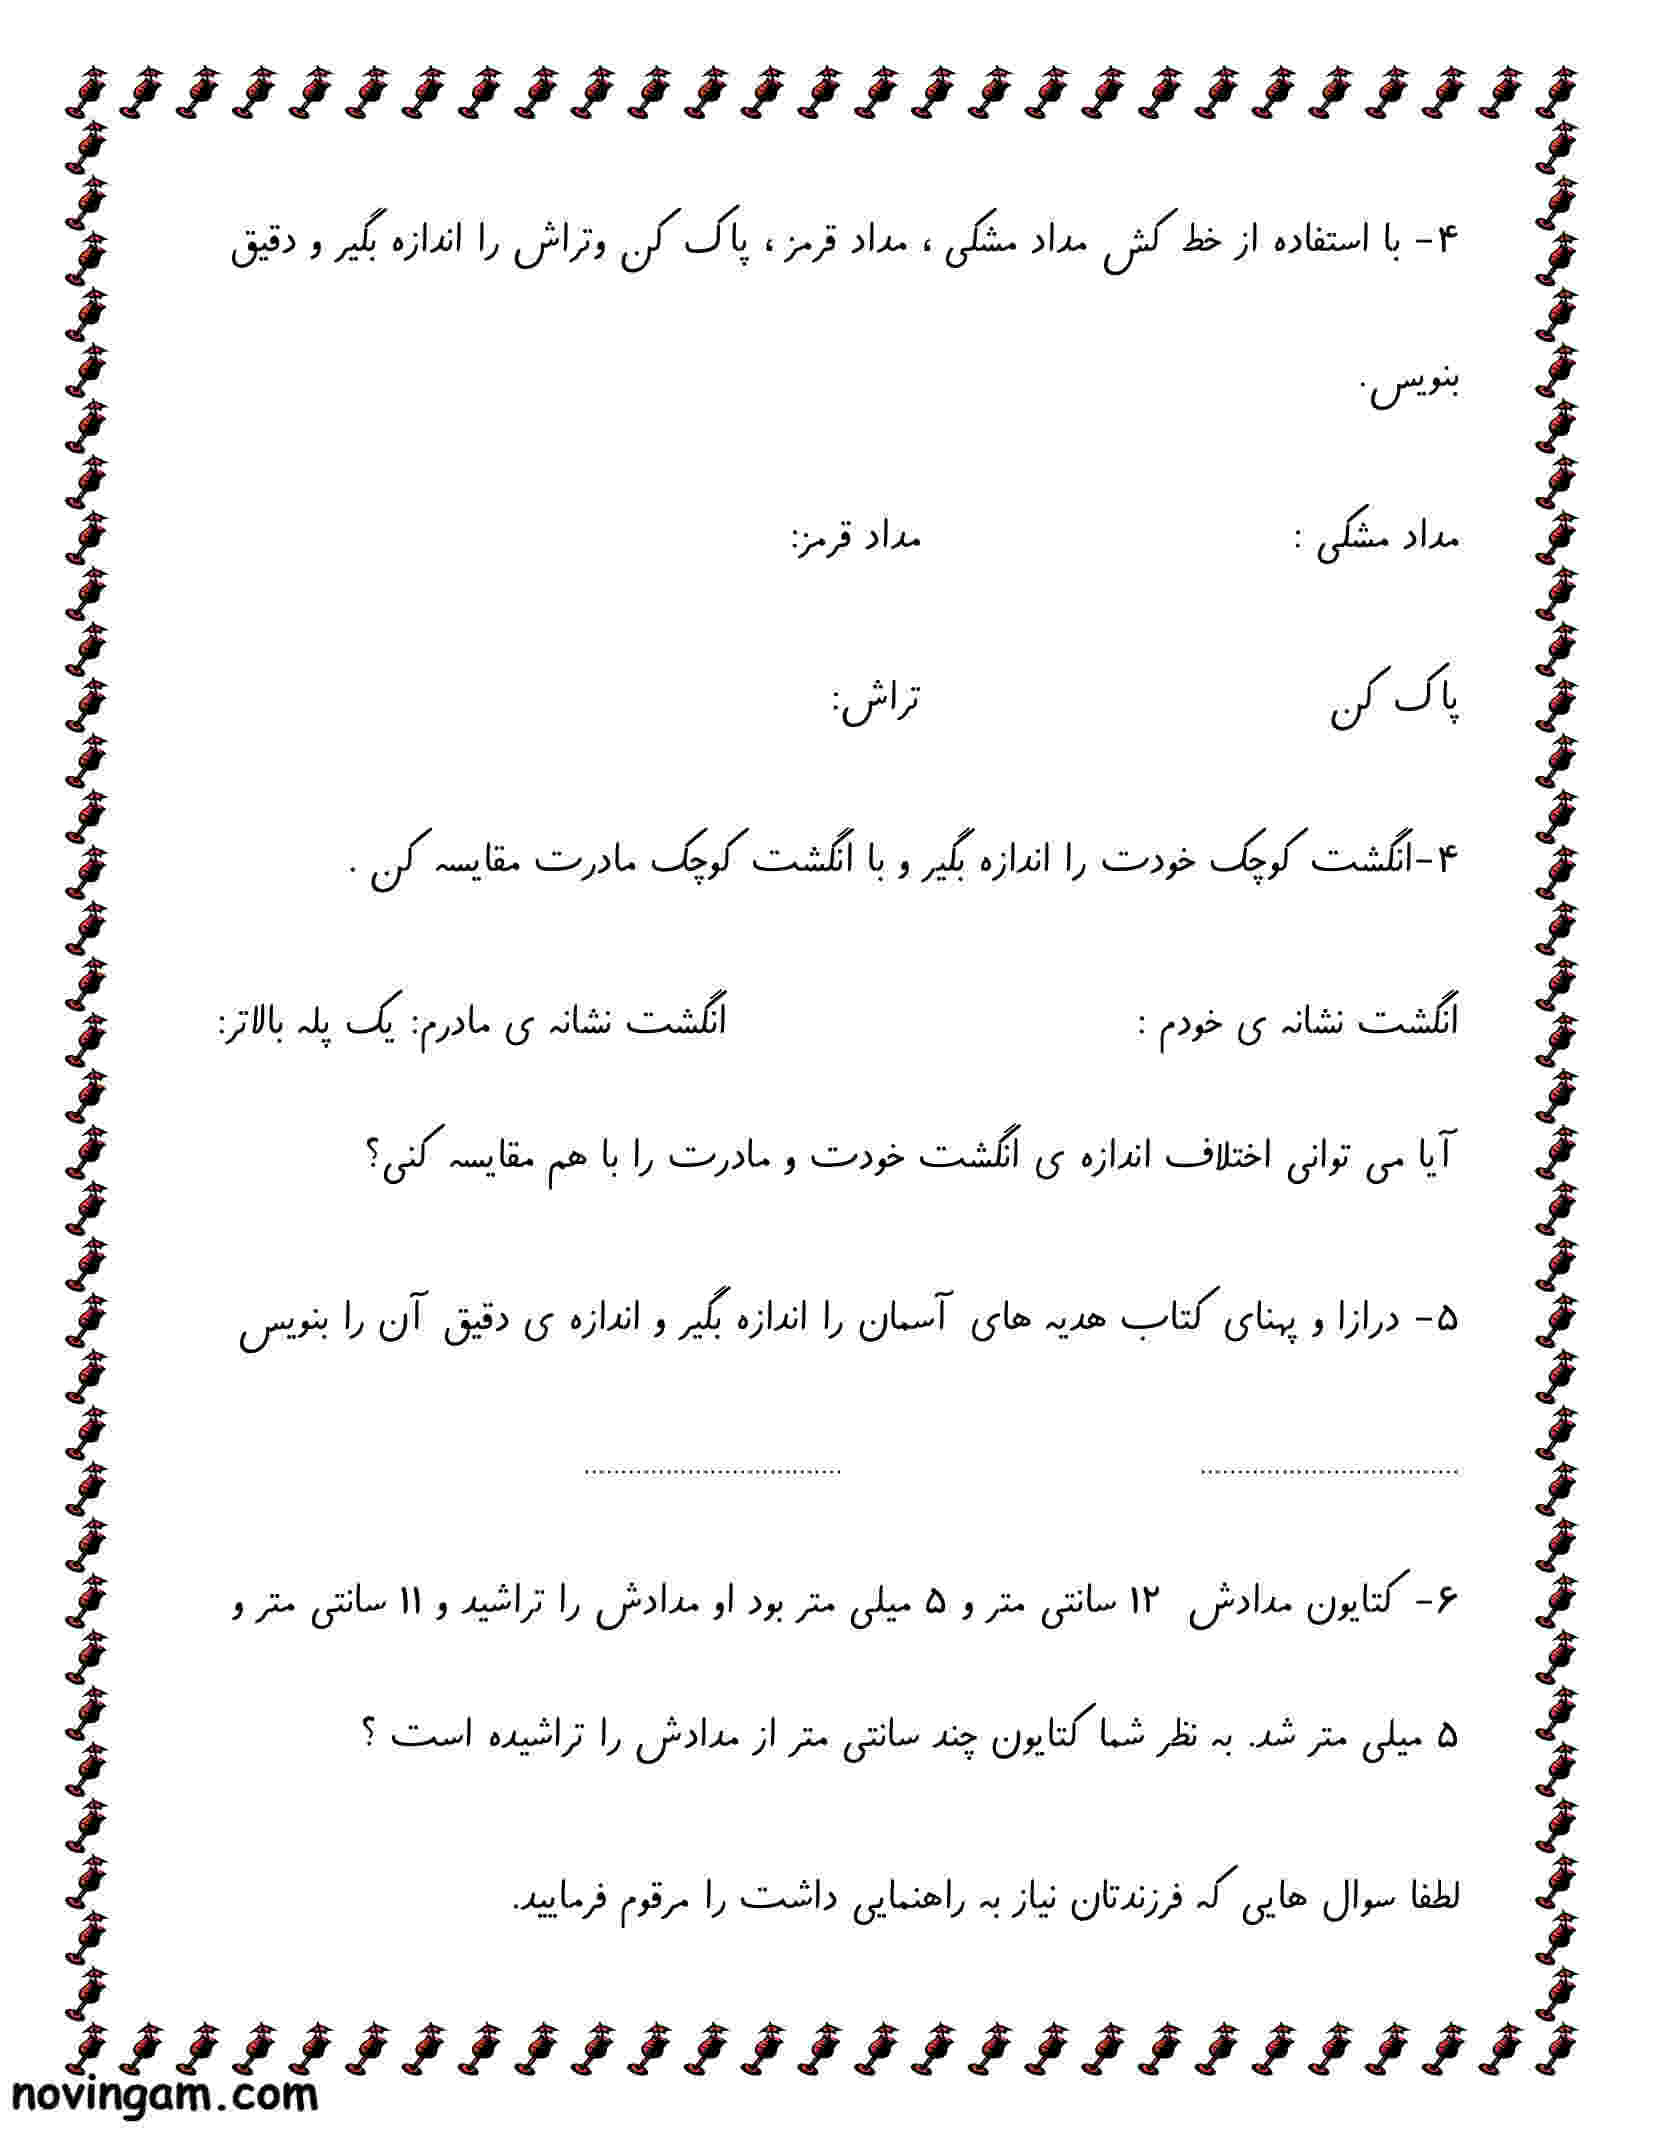 ۴- با استفاده از خط کش مداد مشکی ، مداد قرمز ، پاک کن وتراش را اندازه بگیر و دقیق
بنویس.
مداد مشکی : مداد قرمز:
پاک کن تراش:
۴-انگشت کوچک خودت را اندازه بگیر و با انگشت کوچک مادرت مقایسه کن .
انگشت نشانه ی خودم : انگشت نشانه ی مادرم: یک پله بالاتر:
آیا می توانی اختلاف اندازه ی انگشت خودت و مادرت را با هم مقایسه کنی؟
۵- درازا و پهنای کتاب هدیه های آسمان را اندازه بگیر و اندازه ی دقیق آن را بنویس
................................... ...................................
۶- کتایون مدادش ۱۲ سانتی متر و ۵ میلی متر بود او مدادش را تراشید و ۱۱ سانتی متر و
۵ میلی متر شد. به نظر شما کتایون چند سانتی متر از مدادش را تراشیده است ؟
لطفا سوال هایی که فرزندتان نیاز به راهنمایی داشت را مرقوم فرمایید.
novingam.com